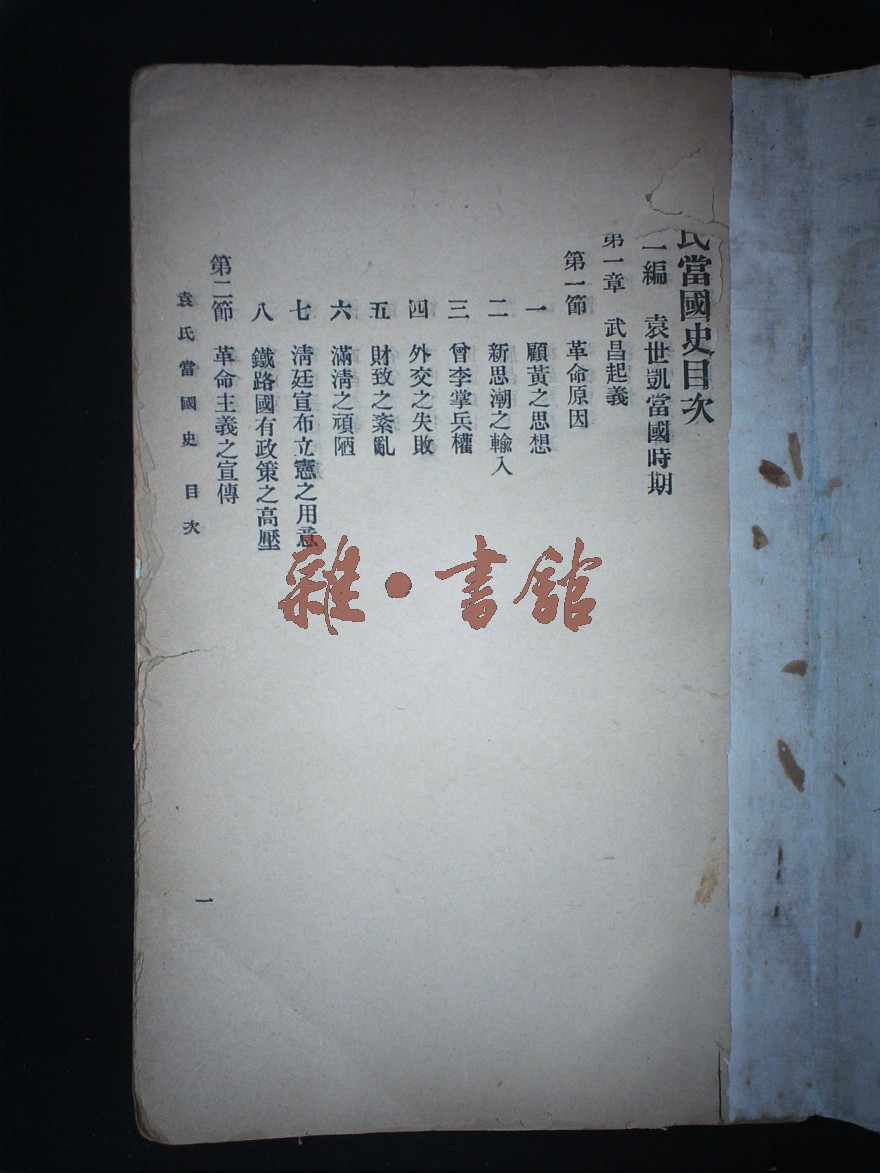 氏當國史目次
一編 袁世凱當國時期
第一章 武昌起義
第一節 革命原因
一 顧黃之思想
二 新思潮之輸入
三 曾李掌兵權
四 外交之失敗
五 財致之紊亂
六 滿淸之頑陋
七 淸廷宣布立憲之用意
八 鐵路國有政策之高壓
第二節 革命主義之宣傳
袁氏當國史 目次
一
雜·書館